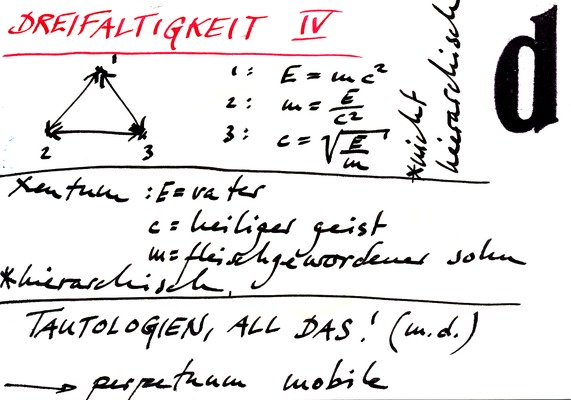 DREIFALTIGKEIT IV
1
2 3
1: E = mc²
2: m = E/c²
3: c = √E/m
*nicht
hierarchisch
d
xentum : E = vater
c = heiliger geist
m = fleischgewordener sohn
*hierarchisch.
TAUTOLOGIEN, ALL DAS! (m.d.)
→ perpetuum mobile